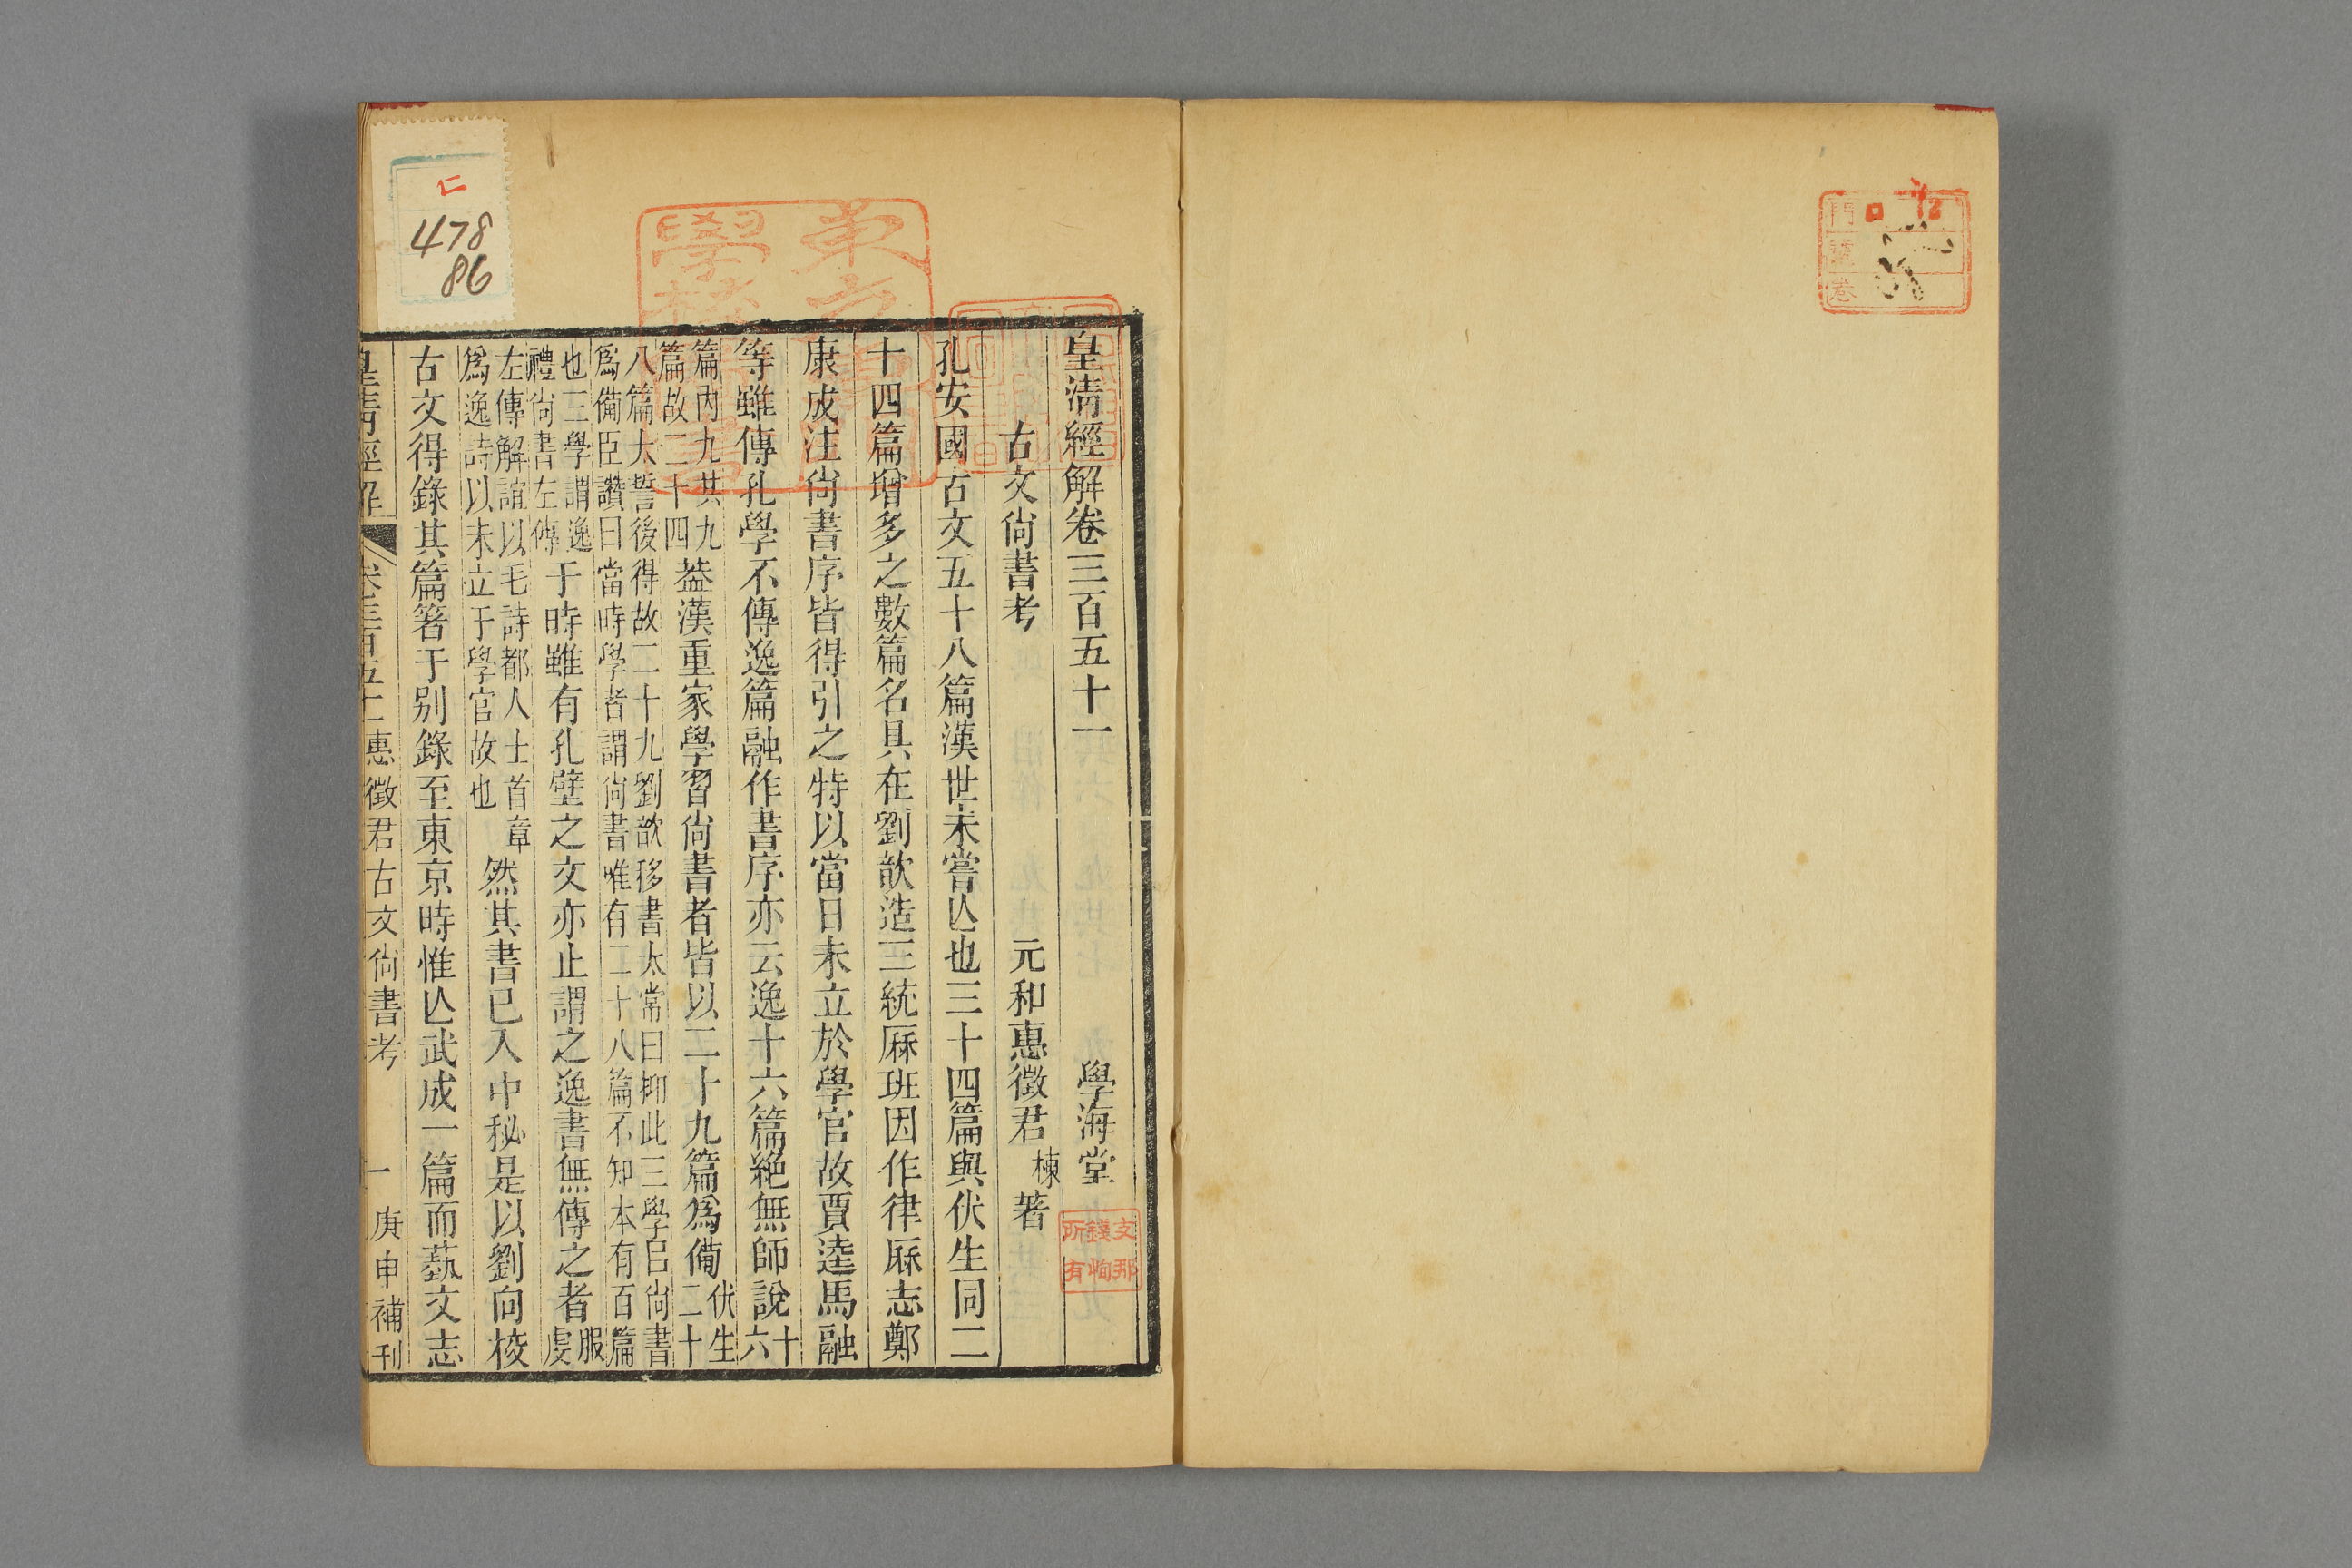 皇清經解卷三百五十一 學海堂
古文尙書考 元和惠徵君棟著
孔安國古文五十八篇漢世未嘗亾也三十四篇與伏生同二
十四篇增多之數篇名具在劉歆造三統厤班因作律厤志鄭
康成注尙書序皆得引之特以當日未立於學官故賈逵馬融
等雖傳孔學不傳逸篇融作書序亦云逸十六篇絶無師說十六
篇內九共九篇故二十四葢漢重家學習尙書者皆以二十九篇爲備伏生二十
八篇太誓後得故二十九劉歆移書太常曰抑此三學㠯尙書
爲備臣瓚曰當時學者謂尙書唯有二十八篇不知本有百篇
也三學謂逸禮尙書左傳于時雖有孔壁之文亦止謂之逸書無傳之者服虔
左傳解誼以毛詩都人士首章爲逸詩以未立于學官故也然其書已入中秘是以劉向校
古文得錄其篇著于别錄至東京時惟亾武成一篇而藝文志
皇清經解 卷三百五十一 惠徵君古文尙書考 一 庚申補刊
478
86
支那
錢恂
所有
門
號
卷